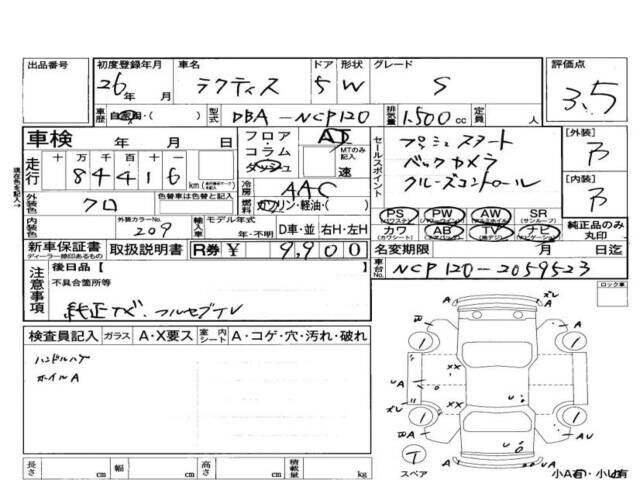 出品番号 初度登録年月 車名 ドア 形状 グレード 評価点
26年 月 ラクティス 5 W S 3.5
車歴 自家用・( ) 型式 DBA-NCP120 排気量 1.500cc 定員 人
車検 年 月 日 フロア・コラム・ダッシュ AT MTのみ記入 速
走行 十 万 千 百 十 一
84416 km
冷房 AAC
セールスポイント
プッシュスタート
バックカメラ
クルーズコントロール
[外装]
[内装]
外装色 クロ 色替車は色と替と記入 燃料 ガソリン・軽油・( )
内装色 外装カラーNo. 209 輸入車 モデル年式 年・不明 D車・並 右H・左H
PS PW AW SR
(パワステ) (パワーウィンドウ) (アルミホイル) (サンルーフ)
カワ AB TV ナビ
(カワシート) (エアバック) (地デジ) (ナビゲーション)
純正品のみ丸印
新車保証書 取扱説明書 R券 ¥ 9,900 名変期限 月 日迄
ディーラー捺印あるもの
車台No. NCP120-2059523
注意事項 後日品 [ ]
不具合箇所等
ロック車
検査員記入 ガラス A・X要ス 室内シート A・コゲ・穴・汚れ・破れ
ハンドルハゲ
ホイルA
長さ cm 幅 cm 高さ cm 積載量 kg
スペア 小A有・小U有